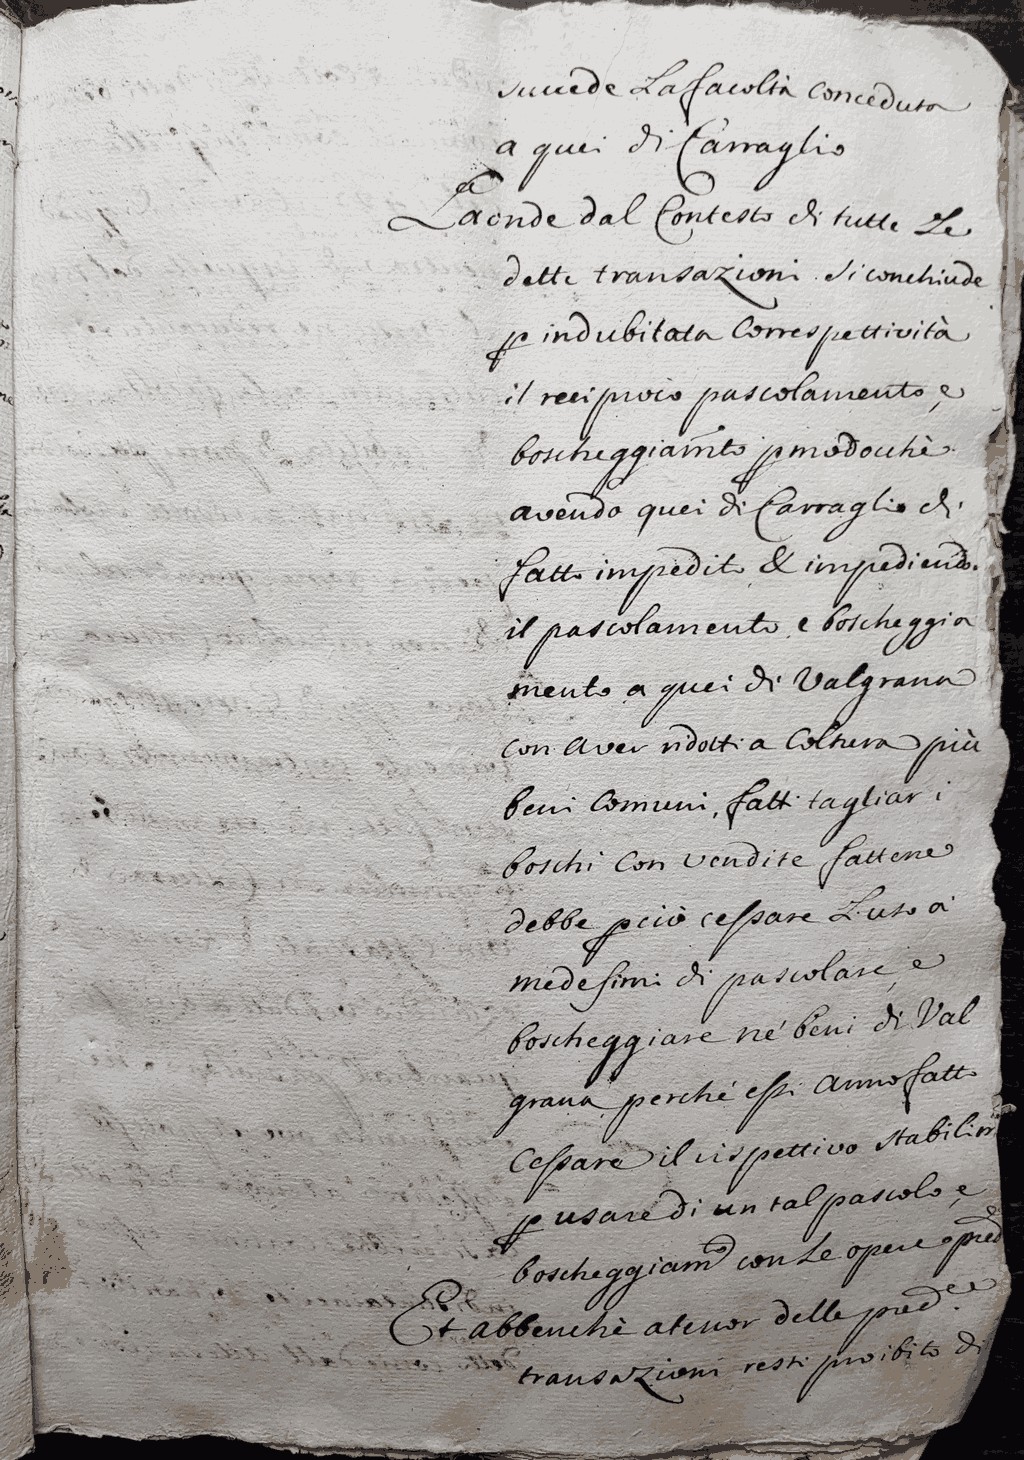 succede La facoltà Conceduta
a quei di Carraglio
Laonde dal Contesto di tutte Le
dette transazioni si conchiude
p indubitata Correspettività
il reciproco pascolamento, e
boscheggiamto p modocchè
avendo quei di Carraglio di
fatto impedito & impediendo
il pascolamento, e boscheggia
mento a quei di Valgrana
con aver ridotti a Coltura più
beni Comuni, fatti tagliar i
boschi Con vendite fattene
debbe pciò cessare L'uso a
medesimi di pascolare, e
boscheggiare né beni di Val
grana perché essi anno fatto
Cessare il rispettivo
p usare di un tal pascolo, e
boscheggiamto con Le opere
Et abbenchè a tenor delle pred.ee
transazioni resti proibito di